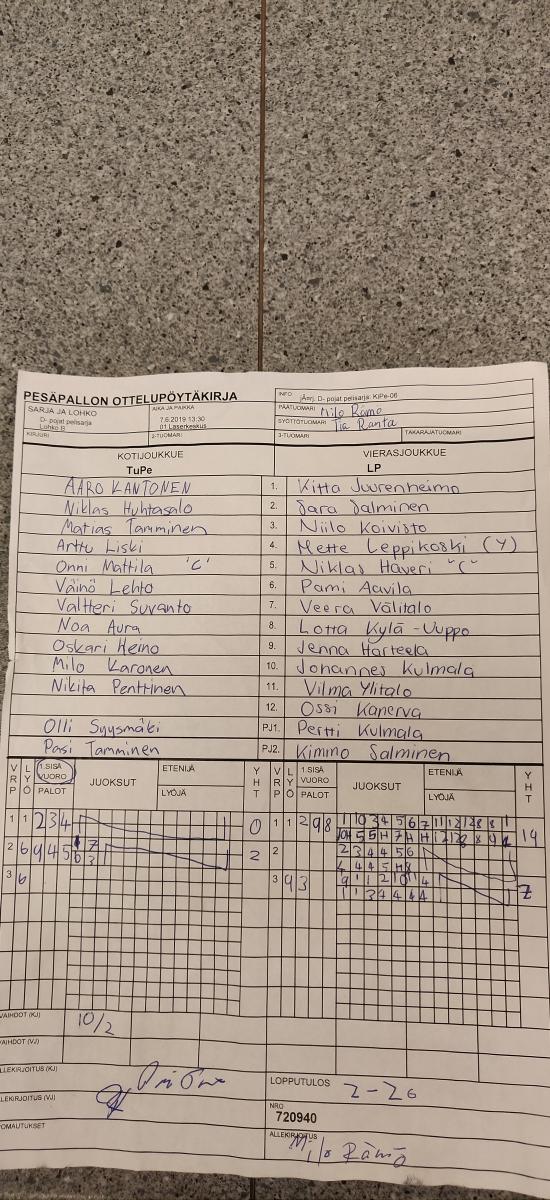 PESÄPALLON OTTELUPÖYTÄKIRJA
INFO
jÄmrj. D- pojat pelisarja: KiPe-06
SARJA JA LOHKO
D- pojat pelisarja
Lohko B
AIKA JA PAIKKA
7.6.2019 13:30
01 Laserkeskus
PÄÄTUOMARI Milo Rämö
SYÖTTÖTUOMARI Tia Ranta
KIRJURI 2-TUOMARI 3-TUOMARI TAKARAJATUOMARI
KOTIJOUKKUE VIERASJOUKKUE
TuPe LP
AARO KANTONEN 1. Kitta Juurenheimo
Niklas Huhtasalo 2. Sara Salminen
Matias Tamminen 3. Niilo Koivisto
Arttu Liski 4. Mette Leppikoski (Y)
Onni Mattila 'C' 5. Niklas Haveri "C"
Väinö Lehto 6. Pami Aavila
Valtteri Suvanto 7. Veera Välitalo
Noa Aura 8. Lotta Kylä-Uuppo
Oskari Heino 9. Jenna Harteela
Milo Karonen 10. Johannes Kulmala
Nikita Penttinen 11. Vilma Ylitalo
12. Ossi Kanerva
Olli Syysmäki PJ1. Pertti Kulmala
Pasi Tamminen PJ2. Kimmo Salminen
VRP LYÖ 1.SISÄ VUORO PALOT JUOKSUT ETENIJÄ LYÖJÄ YHT VRP LYÖ 1.SISÄ VUORO PALOT JUOKSUT ETENIJÄ LYÖJÄ YHT
1 1 2 3 4 0 1 1 2 9 8 19
2 6 9 4 5 2 2
3 6 3 9 3 7
VAIHDOT (KJ) 10/2
VAIHDOT (VJ)
ALLEKIRJOITUS (KJ)
LOPPUTULOS 2-26
ALLEKIRJOITUS (VJ)
NRO
720940
HUOMAUTUKSET
ALLEKIRJOITUS
Milo Rämö